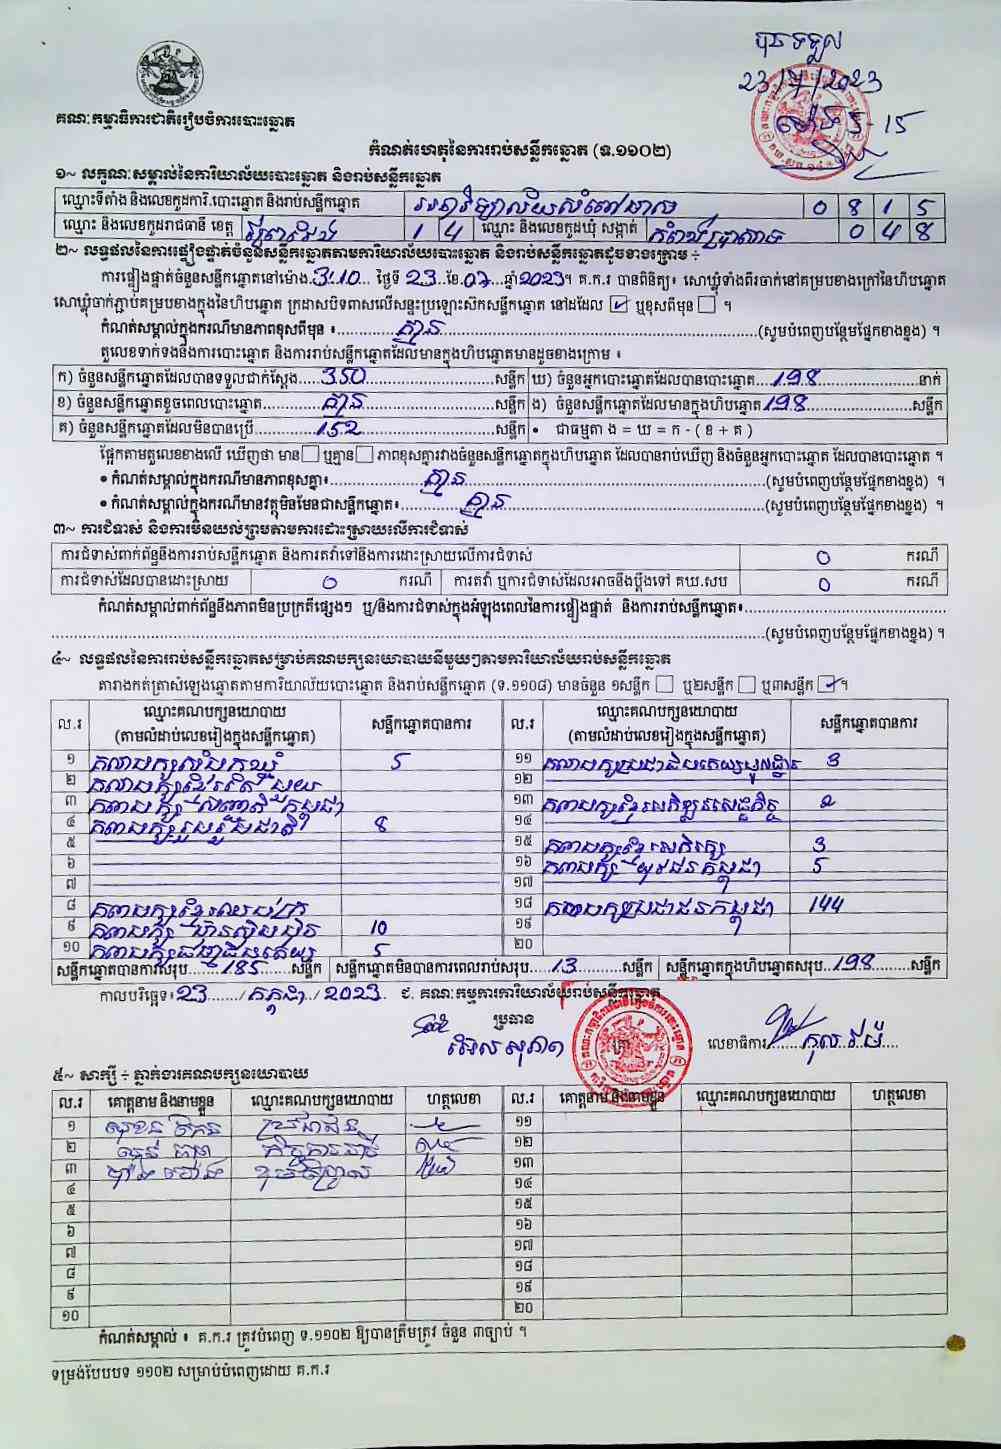 បានទទួល
23/7/2023
ម៉ោង 5-15
គណៈកម្មាធិការជាតិរៀបចំការបោះឆ្នោត
កំណត់ហេតុនៃការរាប់សន្លឹកឆ្នោត (ទ.១១០២)
១~ លក្ខណៈសម្គាល់នៃការិយាល័យបោះឆ្នោត និងរាប់សន្លឹកឆ្នោត
ឈ្មោះទីតាំង និងលេខកូដការិ.បោះឆ្នោត និងរាប់សន្លឹកឆ្នោត 0 8 1 5
ឈ្មោះ និងលេខកូដរាជធានី ខេត្ត 1 4 ឈ្មោះ និងលេខកូដឃុំ សង្កាត់ 0 4 8
២~ លទ្ធផលនៃការផ្ទៀងផ្ទាត់ចំនួនសន្លឹកឆ្នោតតាមការិយាល័យបោះឆ្នោត និងរាប់សន្លឹកឆ្នោតដូចខាងក្រោម ÷
ការផ្ទៀងផ្ទាត់ចំនួនសន្លឹកឆ្នោតនៅម៉ោង 3:10 ថ្ងៃទី 23 ខែ 07 ឆ្នាំ 2023។ គ.ក.រ បានពិនិត្យ៖ សោឃ្មុំទាំងពីរចាក់នៅគម្របខាងក្រៅនៃហិបឆ្នោត
សោឃ្មុំចាក់ភ្ជាប់គម្របខាងក្នុងនៃហិបឆ្នោត ក្រដាសបិទពាសលើសន្ទះប្រឡោះស៊កសន្លឹកឆ្នោត នៅដដែល ✓ ឬខុសពីមុន ។
កំណត់សម្គាល់ក្នុងករណីមានភាពខុសពីមុន ៖ គ្មាន (សូមបំពេញបន្ថែមផ្នែកខាងខ្នង) ។
តួលេខទាក់ទងនឹងការបោះឆ្នោត និងការរាប់សន្លឹកឆ្នោតដែលមានក្នុងហិបឆ្នោតមានដូចខាងក្រោម ៖
ក) ចំនួនសន្លឹកឆ្នោតដែលបានទទួលជាក់ស្តែង 350 សន្លឹក ឃ) ចំនួនអ្នកបោះឆ្នោតដែលបានបោះឆ្នោត 198 នាក់
ខ) ចំនួនសន្លឹកឆ្នោតខូចពេលបោះឆ្នោត គ្មាន សន្លឹក ង) ចំនួនសន្លឹកឆ្នោតដែលមានក្នុងហិបឆ្នោត 198 សន្លឹក
គ) ចំនួនសន្លឹកឆ្នោតដែលមិនបានប្រើ 152 សន្លឹក • ជាធម្មតា ង = ឃ = ក - ( ខ + គ )
ផ្អែកតាមតួលេខខាងលើ ឃើញថា មាន ឬគ្មាន ភាពខុសគ្នារវាងចំនួនសន្លឹកឆ្នោតក្នុងហិបឆ្នោត ដែលបានរាប់ឃើញ និងចំនួនអ្នកបោះឆ្នោត ដែលបានបោះឆ្នោត ។
• កំណត់សម្គាល់ក្នុងករណីមានភាពខុសគ្នា៖ គ្មាន (សូមបំពេញបន្ថែមផ្នែកខាងខ្នង) ។
• កំណត់សម្គាល់ក្នុងករណីមានវត្ថុមិនមែនជាសន្លឹកឆ្នោត៖ គ្មាន (សូមបំពេញបន្ថែមផ្នែកខាងខ្នង) ។
៣~ ការជំទាស់ និងការមិនយល់ព្រមតាមការដោះស្រាយលើការជំទាស់
ការជំទាស់ពាក់ព័ន្ធនឹងការរាប់សន្លឹកឆ្នោត និងការតវ៉ាទៅនឹងការដោះស្រាយលើការជំទាស់ 0 ករណី
ការជំទាស់ដែលបានដោះស្រាយ 0 ករណី ការតវ៉ា ឬការជំទាស់ដែលអាចនឹងប្តឹងទៅ គឃ.សប 0 ករណី
កំណត់សម្គាល់ពាក់ព័ន្ធនឹងភាពមិនប្រក្រតីផ្សេងៗ ឬ/និងការជំទាស់ក្នុងអំឡុងពេលនៃការផ្ទៀងផ្ទាត់ និងការរាប់សន្លឹកឆ្នោត៖
(សូមបំពេញបន្ថែមផ្នែកខាងខ្នង) ។
៤~ លទ្ធផលនៃការរាប់សន្លឹកឆ្នោតសម្រាប់គណបក្សនយោបាយនីមួយៗតាមការិយាល័យរាប់សន្លឹកឆ្នោត
តារាងកត់ត្រាសំឡេងឆ្នោតតាមការិយាល័យបោះឆ្នោត និងរាប់សន្លឹកឆ្នោត (ទ.១១០៨) មានចំនួន ១សន្លឹក ឬ២សន្លឹក ឬ៣សន្លឹក ✓ ។
ល.រ ឈ្មោះគណបក្សនយោបាយ (តាមលំដាប់លេខរៀងក្នុងសន្លឹកឆ្នោត) សន្លឹកឆ្នោតបានការ ល.រ ឈ្មោះគណបក្សនយោបាយ (តាមលំដាប់លេខរៀងក្នុងសន្លឹកឆ្នោត) សន្លឹកឆ្នោតបានការ
១ គណបក្សសំបុកឃ្មុំ 5
២
៣
៤ គណបក្សរួបរួមជាតិ 8
៥
៦
៧
៨
៩ 10
១០ 5
១១ 3
១២
១៣ គណបក្សខ្មែរអភិវឌ្ឍន៍សេដ្ឋកិច្ច 2
១៤
១៥ គណបក្សខ្មែរអភិរក្ស 3
១៦ គណបក្សយុវជនកម្ពុជា 5
១៧
១៨ គណបក្សប្រជាជនកម្ពុជា 144
១៩
២០
សន្លឹកឆ្នោតបានការសរុប 185 សន្លឹក សន្លឹកឆ្នោតមិនបានការពេលរាប់សរុប 13 សន្លឹក សន្លឹកឆ្នោតក្នុងហិបឆ្នោតសរុប 198 សន្លឹក
កាលបរិច្ឆេទ៖ 23 / កក្កដា / 2023 ជ. គណៈកម្មការការិយាល័យរាប់សន្លឹកឆ្នោត
ប្រធាន
លេខាធិការ
៥~ សាក្សី ÷ ភ្នាក់ងារគណបក្សនយោបាយ
ល.រ គោត្តនាម និងនាមខ្លួន ឈ្មោះគណបក្សនយោបាយ ហត្ថលេខា ល.រ គោត្តនាម និងនាមខ្លួន ឈ្មោះគណបក្សនយោបាយ ហត្ថលេខា
១ ប្រជាជន ១១
២ ១២
៣ ១៣
៤ ១៤
៥ ១៥
៦ ១៦
៧ ១៧
៨ ១៨
៩ ១៩
១០ ២០
កំណត់សម្គាល់ ៖ គ.ក.រ ត្រូវបំពេញ ទ.១១០២ ឱ្យបានត្រឹមត្រូវ ចំនួន ៣ច្បាប់ ។
ទម្រង់បែបបទ ១១០២ សម្រាប់បំពេញដោយ គ.ក.រ